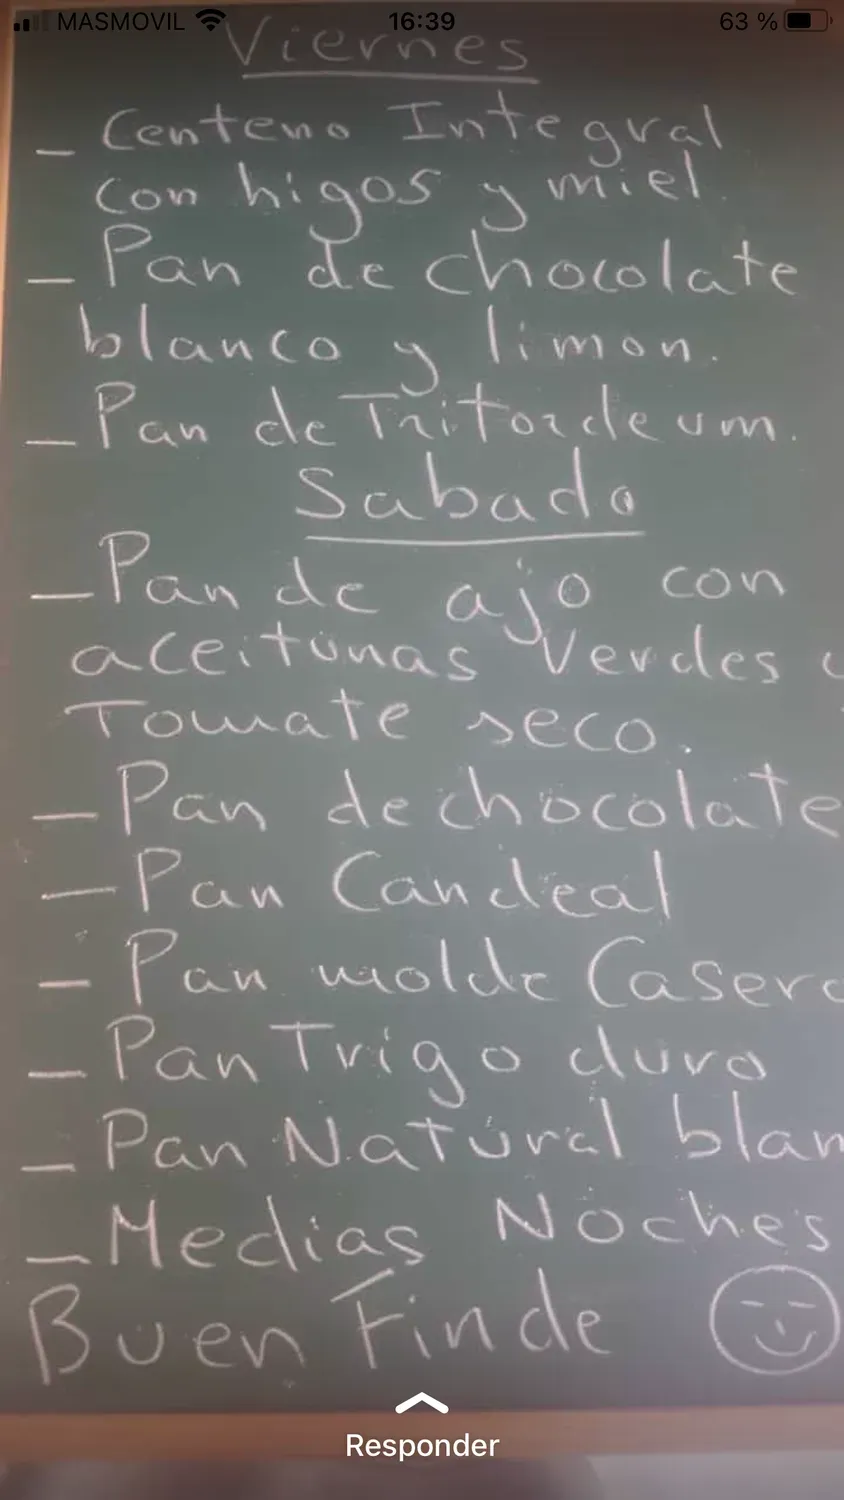 MASMOVIL 16:39 63 %
Viernes
- Centeno Integral
con higos y miel.
- Pan de chocolate
blanco y limon.
- Pan de Tritordeum.
Sabado
- Pan de ajo con
aceitunas Verdes
Tomate seco.
- Pan de chocolate
- Pan Candeal
- Pan molde Casero
- Pan Trigo duro
- Pan Natural blan
- Medias Noches
Buen Finde
Responder